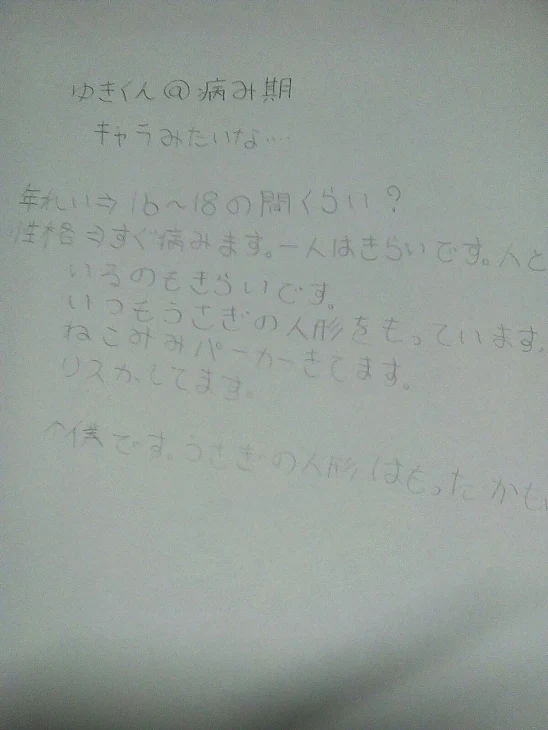 ゆきくん@病み期
キャラみたいな…
年れい⇒16〜18の間くらい?
性格⇒すぐ病みます。一人はきらいです。人と
いるのもきらいです。
いつもうさぎの人形をもっています。
ねこみみパーカーきてます。
リスカしてます。
↑僕です。うさぎの人形はもったかも